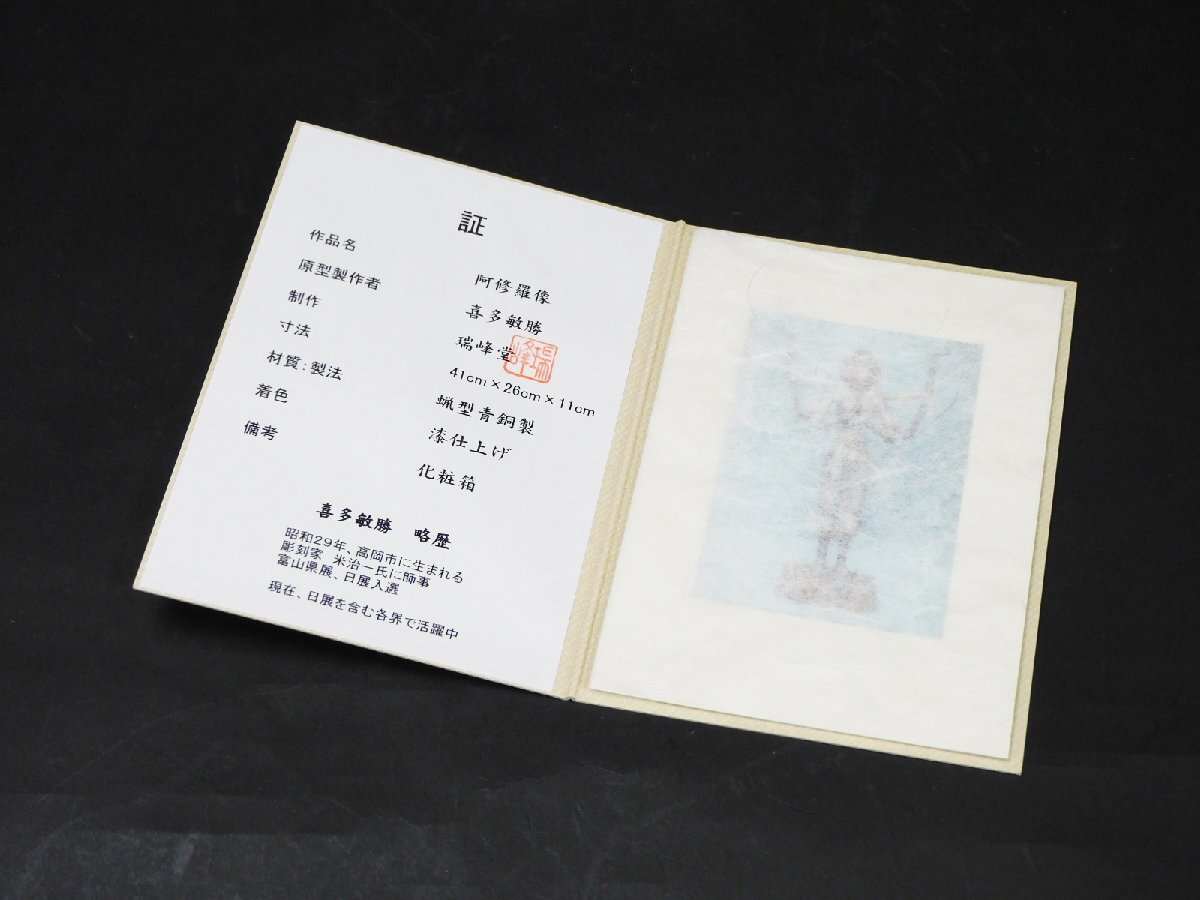 証
作品名 阿修羅像
原型製作者 喜多敏勝
制作 瑞峰堂
寸法 41cm×26cm×11cm
材質:製法 蝋型青銅製
着色 漆仕上げ
備考 化粧箱
喜多敏勝 略歴
昭和29年、高岡市に生まれる
彫刻家 米治一氏に師事
富山県展、日展入選
現在、日展を含む各界で活躍中